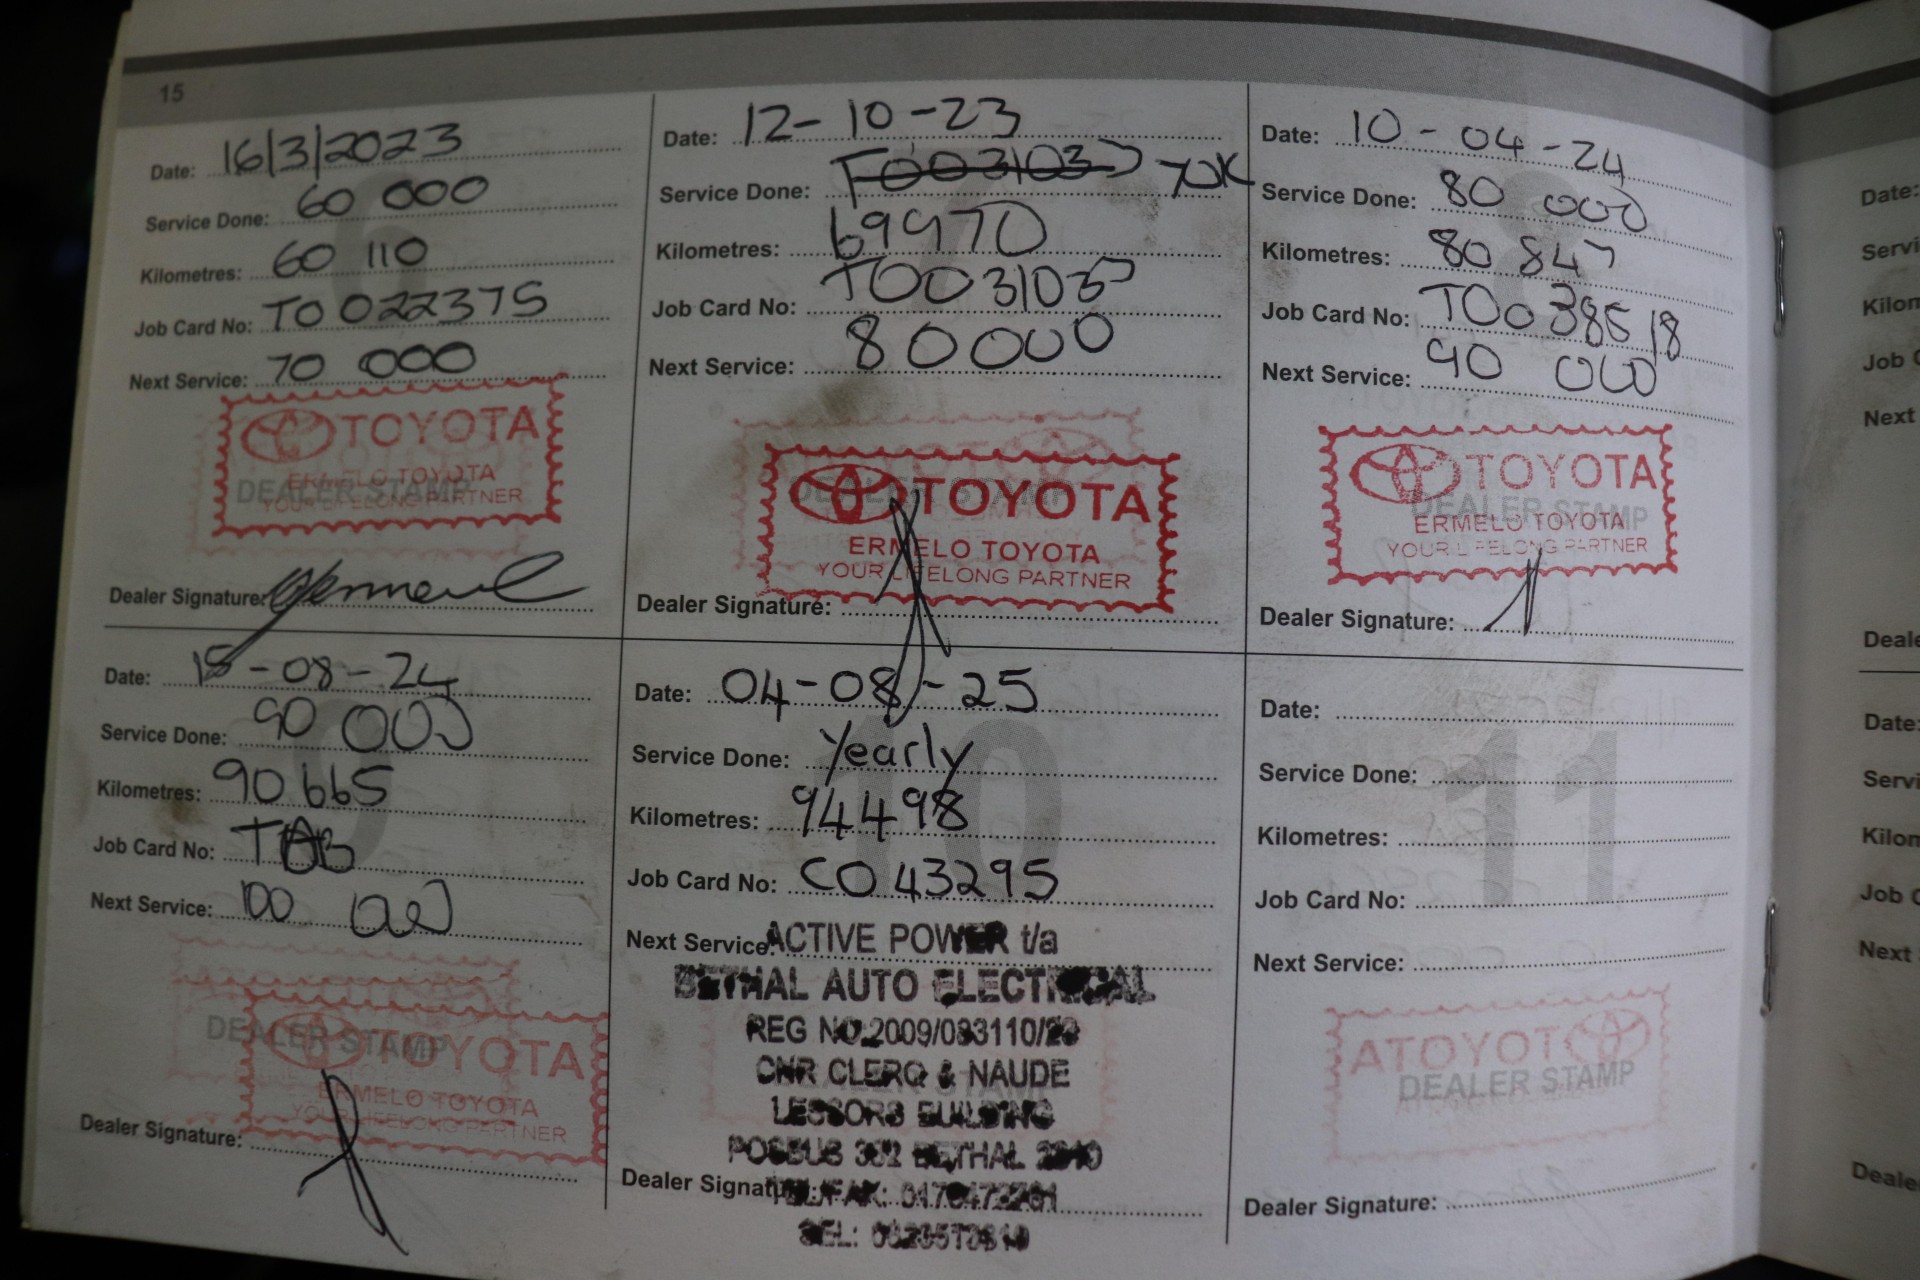 15
Date: 16/3/2023
Service Done: 60 000
Kilometres: 60 110
Job Card No: T0022375
Next Service: 70 000
TOYOTA
DEALER STAMP
ERMELO TOYOTA
YOUR LIFELONG PARTNER
Dealer Signature:
Date: 12-10-23
Service Done: 70K
Kilometres: 69970
Job Card No: T0031035
Next Service: 80000
TOYOTA
DEALER STAMP
ERMELO TOYOTA
YOUR LIFELONG PARTNER
Dealer Signature:
Date: 10-04-24
Service Done: 80 000
Kilometres: 80 847
Job Card No: T0038518
Next Service: 90 000
TOYOTA
DEALER STAMP
ERMELO TOYOTA
YOUR LIFELONG PARTNER
Dealer Signature:
Date: 15-08-24
Service Done: 90 000
Kilometres: 90665
Job Card No:
Next Service: 100 000
DEALER STAMP
TOYOTA
ERMELO TOYOTA
YOUR LIFELONG PARTNER
Dealer Signature:
10
Date: 04-08-25
Service Done: Yearly
Kilometres: 94498
Job Card No: CO43295
Next Service:
ACTIVE POWER t/a
BETHAL AUTO ELECTRICAL
REG NO:2009/083110/23
CNR CLERQ & NAUDE
LESSORS BUILDING
POSBUS 352 BETHAL 2310
TEL/FAX:
Dealer Signature:
SEL:
11
Date:
Service Done:
Kilometres:
Job Card No:
Next Service:
DEALER STAMP
Dealer Signature:
Date:
Servi
Kilom
Job C
Next
Deale
Date:
Servi
Kilom
Job C
Next
Deale